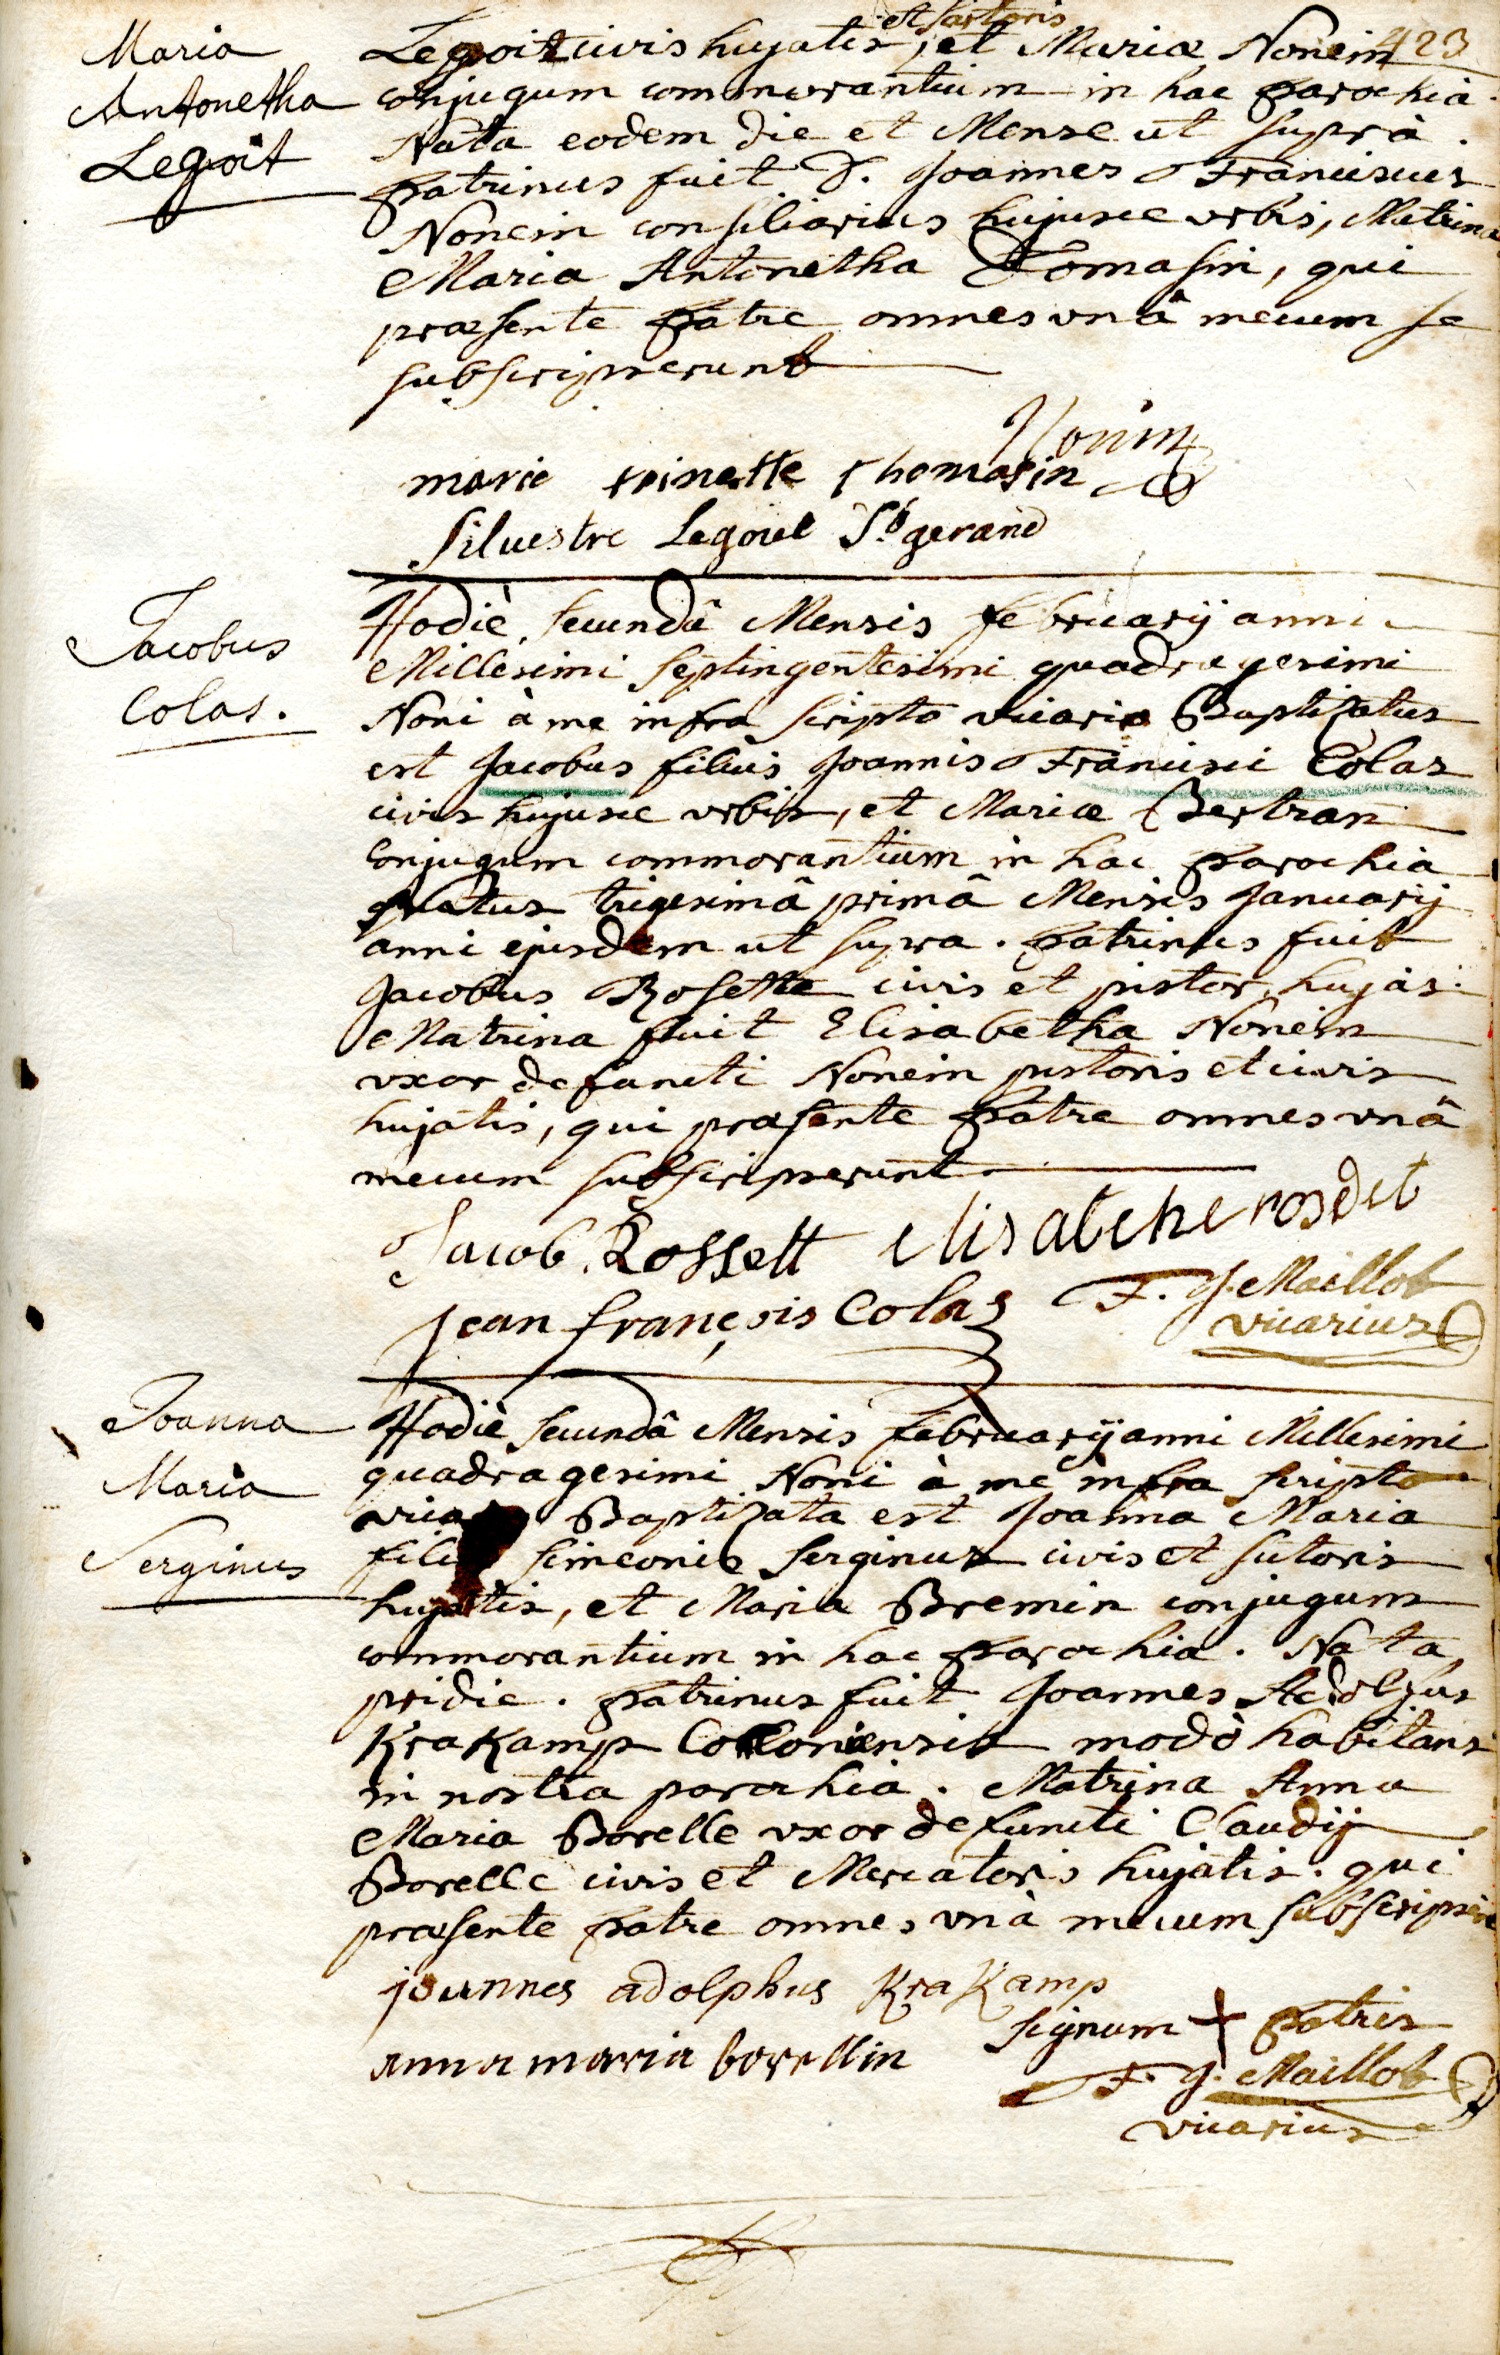 423
Maria
Antonetha
Legoit
et sartoris
Legoit civis hujatis, et Mariæ Nonein
conjugum commorantium in hac parochia.
Nata eodem die et Mense ut suprà.
patrinus fuit D. Joannes Franciscus
Nonein consiliarius hujusce urbis, Matrina
Maria Antonetha Tomasin, qui
præsente patre omnes unâ mecum se
subscripserunt
Nonin
marie toinette thomasin
Silvestre Legoué St gerand
Jacobus
Colas.
Hodiè secundâ Mensis februarij anni
Millesimi septingentesimi quadragesimi
Noni à me infra scripto vicario Baptizatus
est Jacobus filius Joannis Francisci Colas
civis hujusce urbis, et Mariæ Bertran
conjugum commorantium in hac parochia
natus trigesimâ primâ Mensis Januarij
anni ejusdem ut supra. patrinus fuit
Jacobus Rosette civis et pistor hujas.
Matrina fuit Elisabetha Nonein
vxor defuncti Nonein pistoris et civis
hujatis, qui præsente patre omnes unâ
mecum subscripserunt
Jacob Rossett elisabethe rosdet
jean françois Colas F. J. Maillot
vicarius
Joanna
Maria
Serginus
Hodiè secundâ Mensis februarij anni Millesimi
quadragesimi Noni à me infra scripto
Baptizata est Joanna Maria
simeonis serginus civis et sutoris
hujatis, et Maria Bremin conjugum
commorantium in hac parochia. Nata
pridie. patrinus fuit Joannes Adolphus
KraKamp Coloniensis modò habitans
in nostra parochia. Matrina Anna
Maria Borelle vxor defuncti Claudij
Borelle civis et Mercatoris hujatis. qui
præsente patre omnes unà mecum subscripsere
joannes adolphus KraKamp
signum + patris
anna maria borellin
F. J. Maillot
vicarius